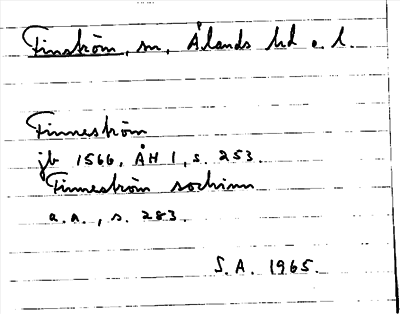 Finström, sn, Ålands hd o. l.
Finneström
jb 1566, ÅH 1, s. 253.
Finneström sochnn
a.a., s. 283.
S.A. 1965.